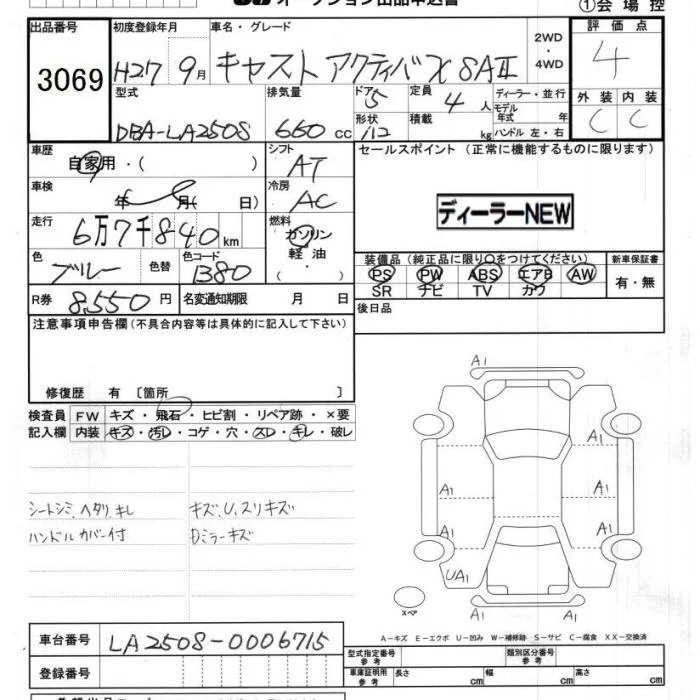 ①会場控
出品番号 初度登録年月 車名・グレード 2WD ・ 4WD 評価点
3069 H27 9月 キャスト アクティバX SAⅡ 4
型式 排気量 ドア 定員 ディーラー・並行 外装 内装
DBA-LA250S 660 cc 5 4人 モデル年式 年 C C
形状 積載 kg ハンドル 左・右
/12
車歴 シフト セールスポイント (正常に機能するものに限ります)
自家用・( ) AT
車検 冷房
年 月( 日) AC
ディーラーNEW
走行 燃料
6万7千840km ガソリン
軽油
( )
色 色替 色コード 装備品(純正品に限り○をつけてください) 新車保証書
ブルー B80 PS PW ABS エアB AW 有・無
SR ナビ TV カワ
R券 8,550円 名変通知期限 月 日 後日品
注意事項申告欄(不具合内容等は具体的に記入して下さい)
修復歴 有 〔箇所 〕
検査員 FW キズ・飛石・ヒビ割・リペア跡・×要
記入欄 内装 キズ・汚レ・コゲ・穴・スレ・キレ・破レ
シートシミ、ヘタリ、キレ キズ、U、スリキズ
ハンドルカバー付 Dミラーキズ
A1
A1
A1 A1
A1 A1
UA1
A1
スペア
車台番号 LA250S-0006715
A-キズ E-エクボ U-凹み W-補修跡 S-サビ C-腐食 XX-交換済
型式指定番号 参考 類別区分番号 参考
登録番号 車庫証明用 参考 長さ cm 幅 cm 高さ cm